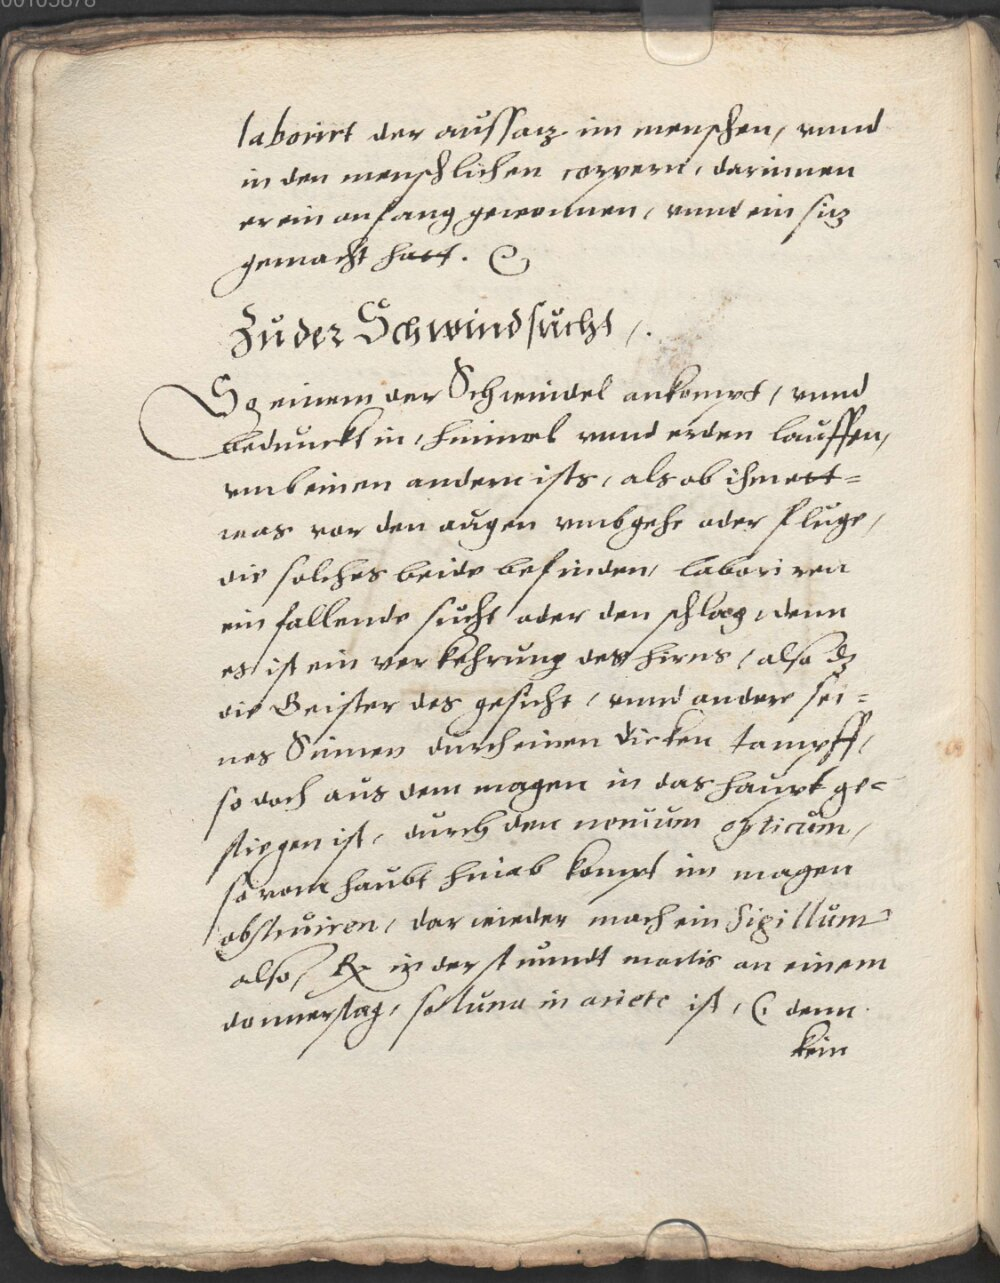 00105878
laborirt der aussatz im menschen, vnnd
in den menschlichen corpern, darinnen
er ein anfang gewonnen, vnnd ein sitz
gemacht hatt.
Zu der Schwindsucht /.
So einem der Schwindel ankompt / vnnd
bedunckt in, himmel vnnd erden lauffen,
vmb einen andern ists, als ob ihm ett=
was vor den augen vmbgehe oder fluge,
die solches beide befinden, laboriren
ein fallende sucht oder den schlag, denn
es ist ein verkehrung des hirns, also dz
die Geister des gesicht, vnnd andere sei=
nes Sinnen durch einen dicken tampff,
so doch aus dem magen in das haupt ge=
stiegen ist, durch den neruum opticum,
so vom haubt hinab kompt im magen
obstruiren, dar wieder mach ein Sigillum
also, ℞ in der stunndt martis an einem
donnerstag, so luna in ariete ist, denn
kein